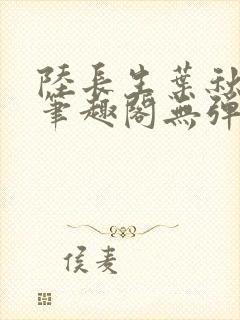 陸長生葉秋
筆趣閣無彈
侯麦